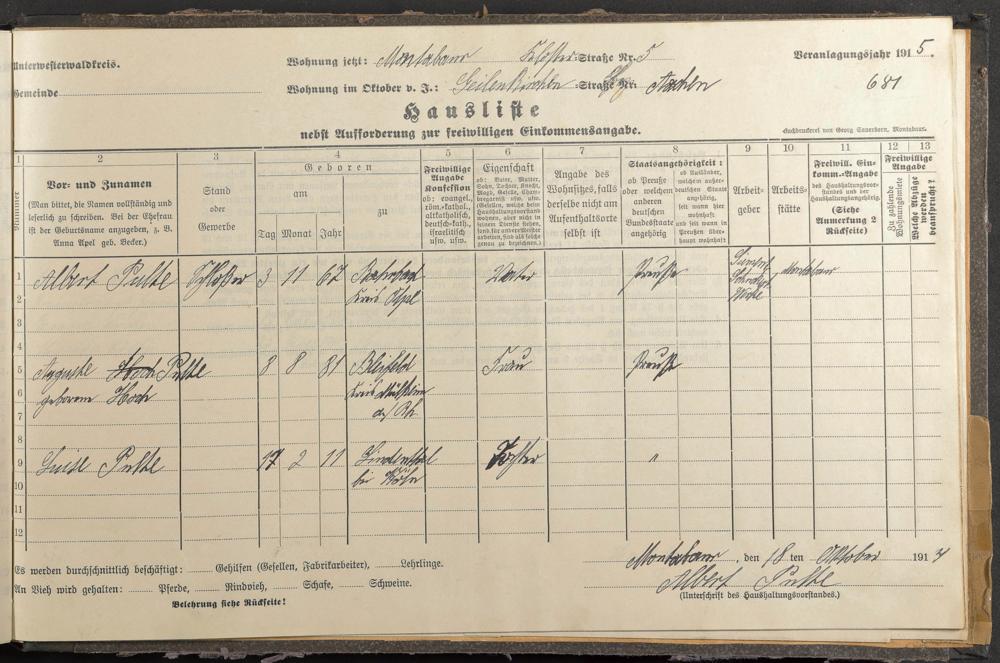 Unterwesterwaldkreis.
Wohnung jetzt: Montabaur Kloster-Straße Nr. 5
Veranlagungsjahr 1915.
Gemeinde
Wohnung im Oktober v. J.: Geilenkirchen -Straße Nr. Aachen
681
Hausliste
nebst Aufforderung zur freiwilligen Einkommensangabe.
Buchdruckerei von Georg Sauerborn, Montabaur.
1 2 3 4 5 6 7 8 9 10 11 12 13
Nummer
Vor- und Zunamen
(Man bittet, die Namen vollständig und
leserlich zu schreiben. Bei der Ehefrau
ist der Geburtsname anzugeben, z. B.
Anna Apel geb. Becker.)
Stand
oder
Gewerbe
Geboren
am
zu
Tag Monat Jahr
Freiwillige
Angabe
Konfession
ob: evangel.,
röm.-kathol.,
altkatholisch,
deutsch-kath.,
israelitisch
usw. usw.
Eigenschaft
ob: Vater, Mutter,
Sohn, Tochter, Knecht,
Magd, Geselle, Cham-
bregarnist usw. usw.
Angabe des
Wohnsitzes, falls
derselbe nicht am
Aufenthaltsorte
selbst ist
Staatsangehörigkeit:
ob Preuße
oder welchem
anderen
deutschen
Bundesstaate
angehörig
ob Ausländer,
welchem außer-
deutschen Staate
angehörig,
seit wann hier
wohnhaft
und seit wann in
Preußen über-
haupt wohnhaft
Arbeit-
geber
Arbeits-
stätte
Freiwill. Ein-
komm.-Angabe
des Haushaltungsvor-
standes und der
Haushaltungsangehörig.
(Siehe
Anmerkung 2
Rückseite)
Freiwillige
Angabe
Zu zahlende
Wohnungsmiete
Welche Abzüge
werden
beansprucht?
1 Albert Schloßer 3 11 67 Kreis Vater Preuße Montabaur
2
3
4
5 Auguste Hoch 8 8 81 Frau Preuße
6 geborene Hoch Kreis
7 a/ Rh
8
9 Luise 17 2 11 Lindenthal Tochter "
10 bei Köln
11
12
Es werden durchschnittlich beschäftigt: Gehilfen (Gesellen, Fabrikarbeiter), Lehrlinge.
An Vieh wird gehalten: Pferde, Rindvieh, Schafe, Schweine.
Belehrung siehe Rückseite!
Montabaur, den 18 ten Oktober 1914
Albert
(Unterschrift des Haushaltungsvorstandes.)